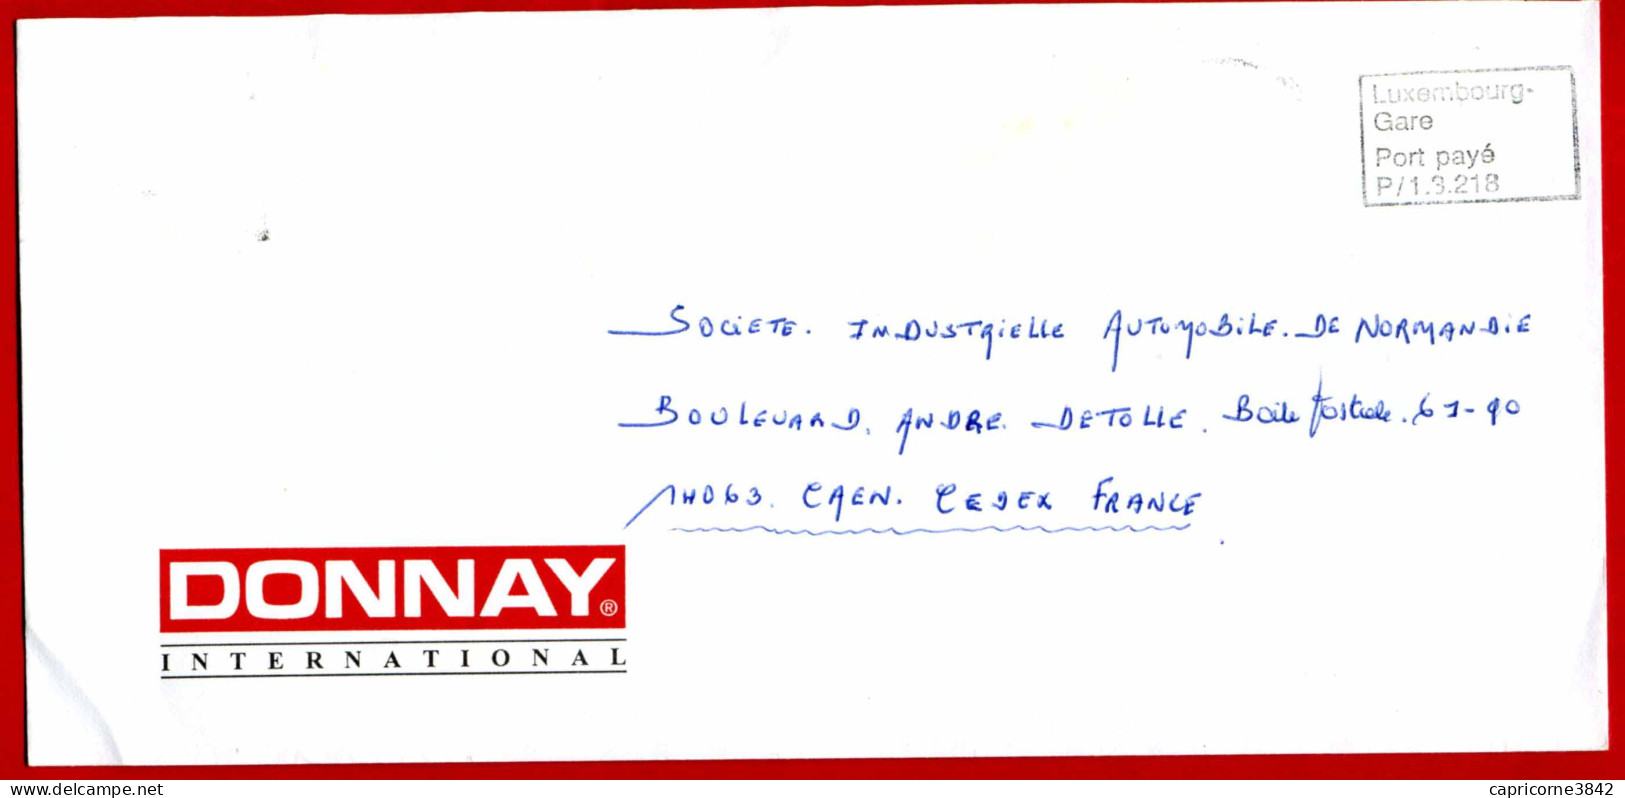 Luxembourg-
Gare
Port payé
P/1.3.218
SOCiETE. INDUSTRIELLE AUTOMOBiLE. DE NORMANDiE
BOULEVARD. ANDRE. DETOLLE. Boîte Postale. 61-90
14063. CAEN. CEDEX FRANCE
DONNAY®
INTERNATIONAL
delcampe.net
capricorne3842